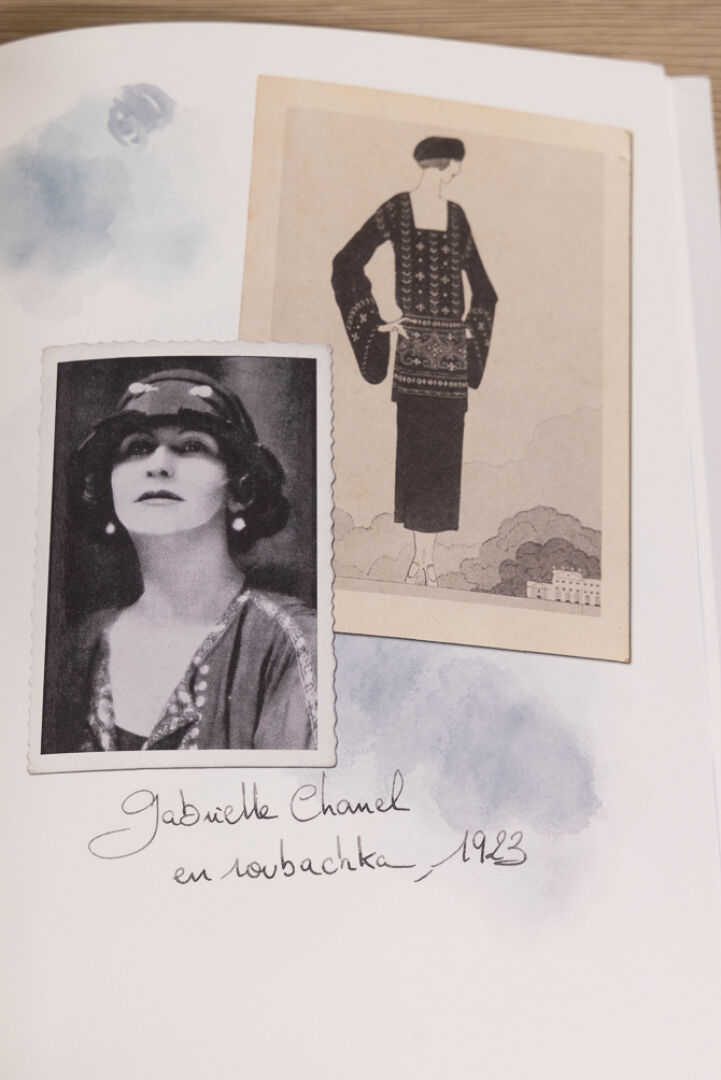 Gabrielle Chanel
en roubachka, 1923